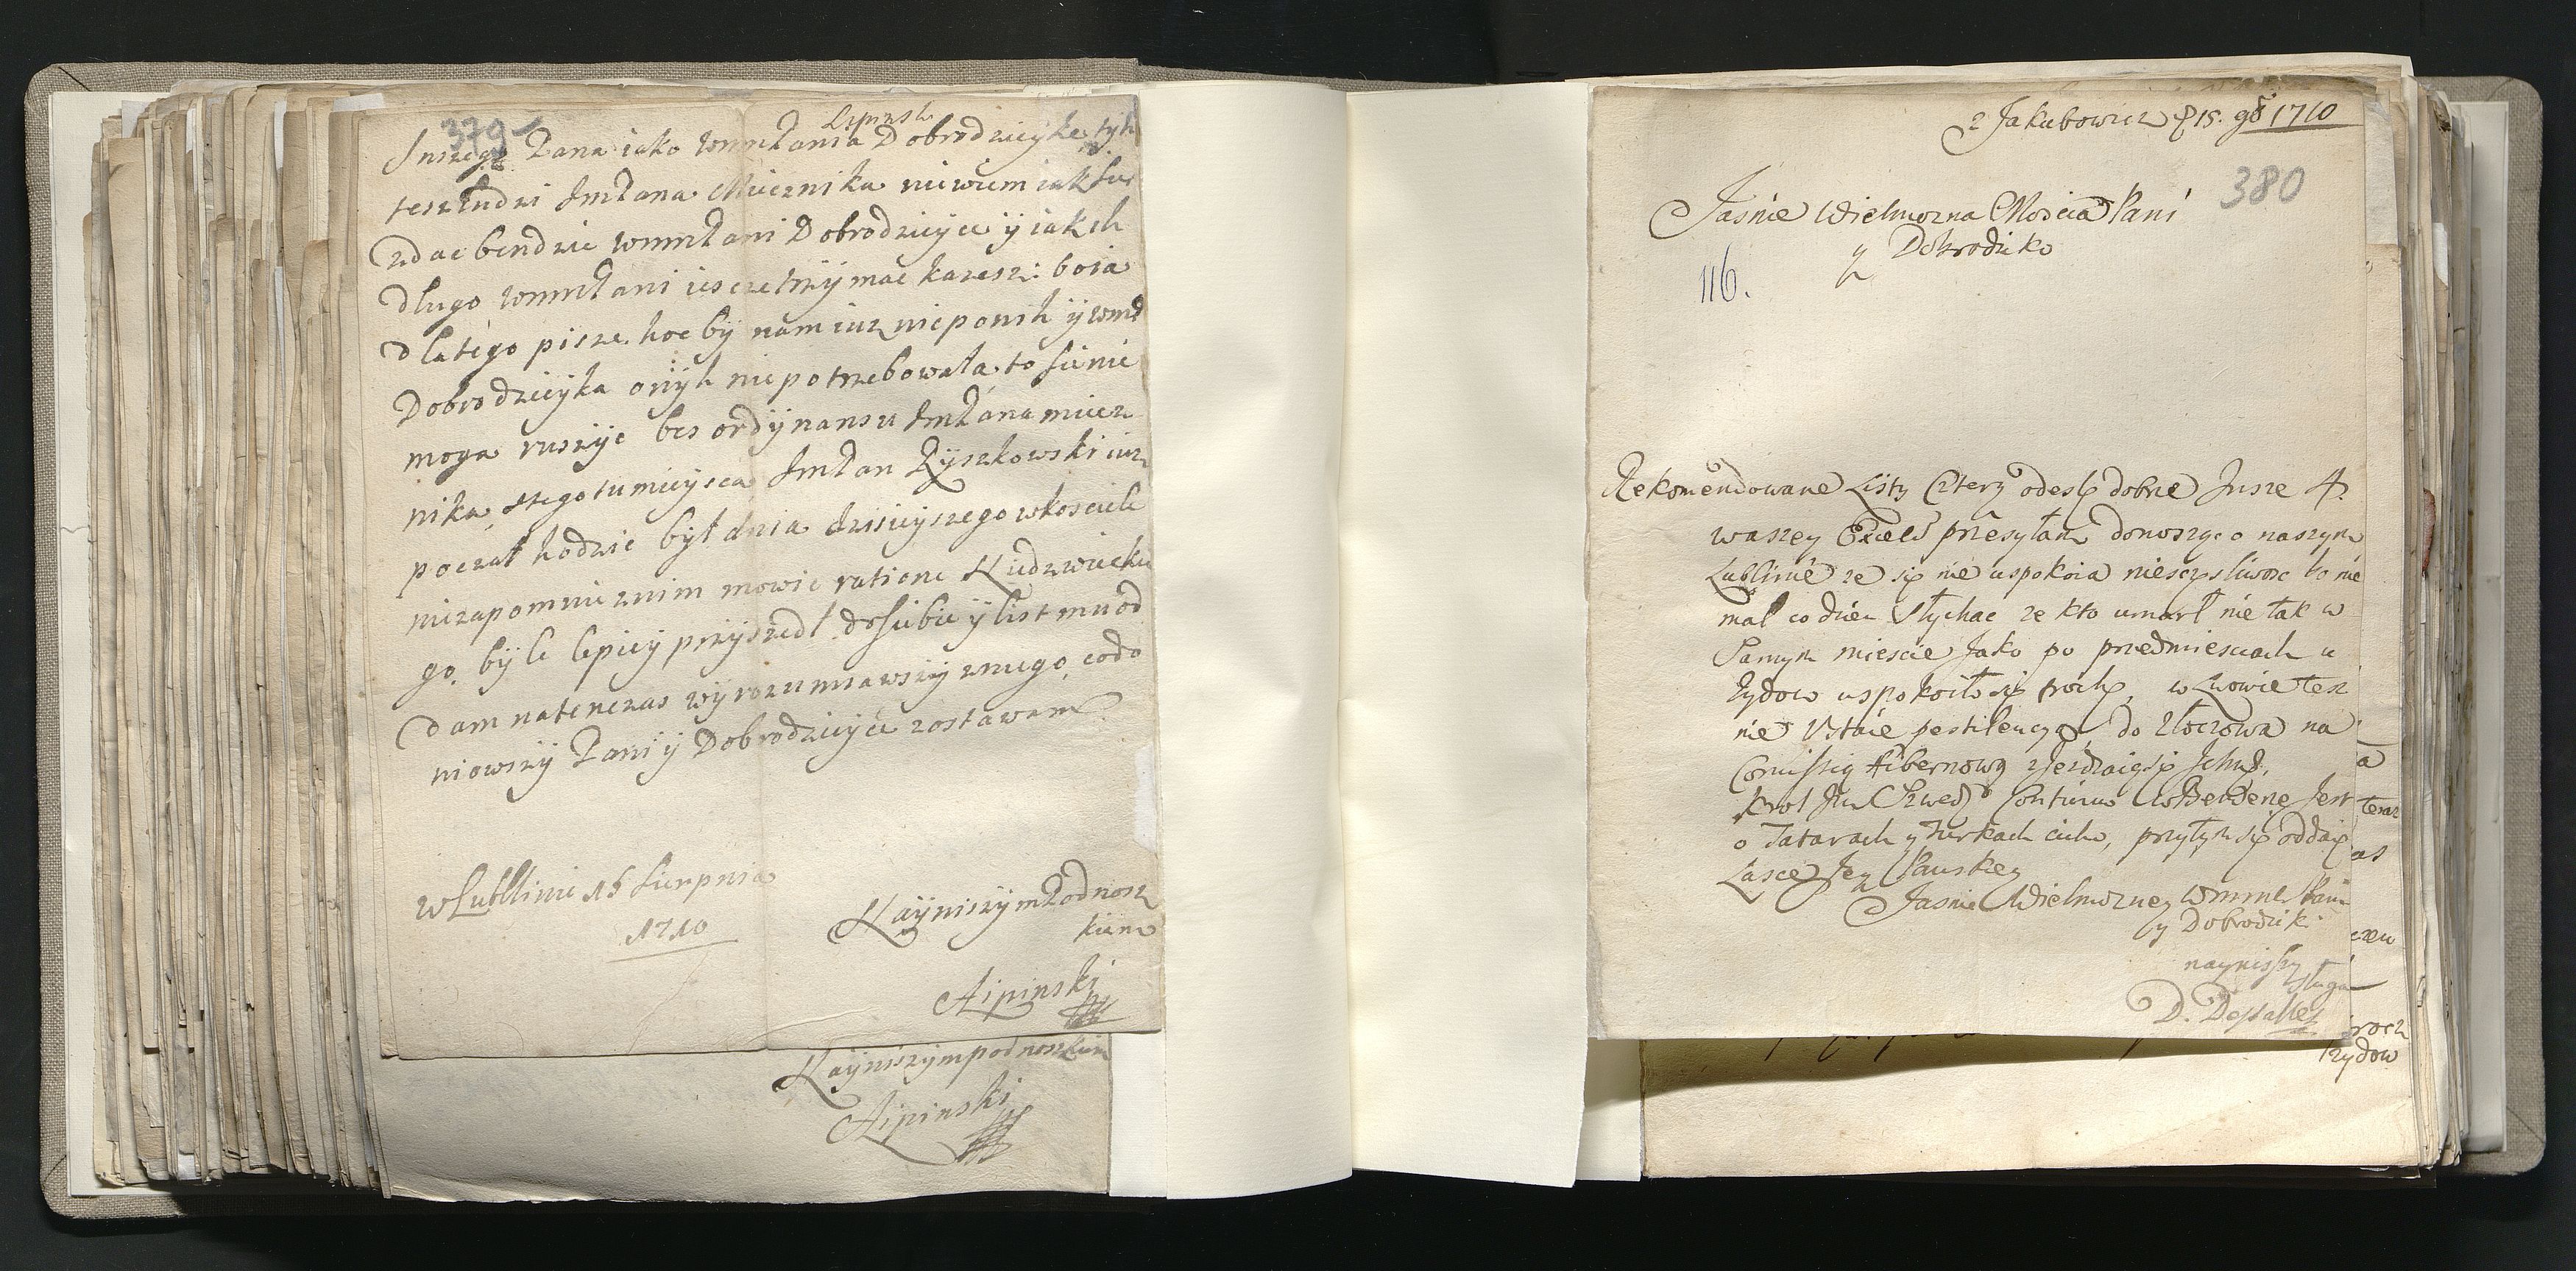 379
Lipnsk
Inszego Pana iako wmmPania Dobrodzieyke, tych
tesz ludzi ImPana Miecznika niewiem iak sie
zdac bendzie wmmPani Dobrodzieyce ÿ iak ich
dlugo wmmPani ieszcze trzÿmac karzesz: bo ia
dlatego pisze. hoc bÿ nam iuz nie ponich ÿ wmP
Dobrodzieÿka onÿh niepotrzebowała, to sie nie
moga ruszÿc bes ordÿnansu ImPana miecz
nika, stego tu mieÿsca ImPan Rÿszkowski iuz
poczał hodzic bÿł dnia dzisieÿszego wkosciele
niezapomnie znim mowic ratione Niedzwiecku
go. bÿle lepieÿ przÿszedł dosiebie ÿ list mu od
dam natenczas wÿrozumiawszÿ zniego, codo
niowszÿ Pani ÿ Dobrodzieÿce zostawam
w Lubllinie 15 Sierpnia
1710
Naÿniszÿm Podnosz
kiem
Lipinski
Naÿniszÿm podnoszkiem
Lipinski
z Jakubowicz 15. 1710
380
Jasnie Wielmozna Moscia Pani
y Dobrodziko
116.
Rekomendowane Listy Cztery odeslę dobrze Insze 4.
waszey przesyłam donoszęc o naszym
Lublinie ze się nie uspokoia niesczęsliwosc bo nie
mal co dzien słychac ze kto umarł nie tak w
Samym miescie Jako po przedmiesciach u
Zydow uspokoiło się trochę, w Lwowie tesz
nie Ustaie pestilencya, do Złoczowa na
Comissią hibernową zjezdzaią się Ichmć,
Krol Jm Szwed Continuo w Benderze Jest
o Tatarach y Turkach cicho, przytym się oddaię
Łasce Jey Panskey
Jasnie Wielmozney Wmme Pani
y Dobrodzik:
nayniszy
sługa
D. Desalles
a
teraz
as
czew
troch
Zydow